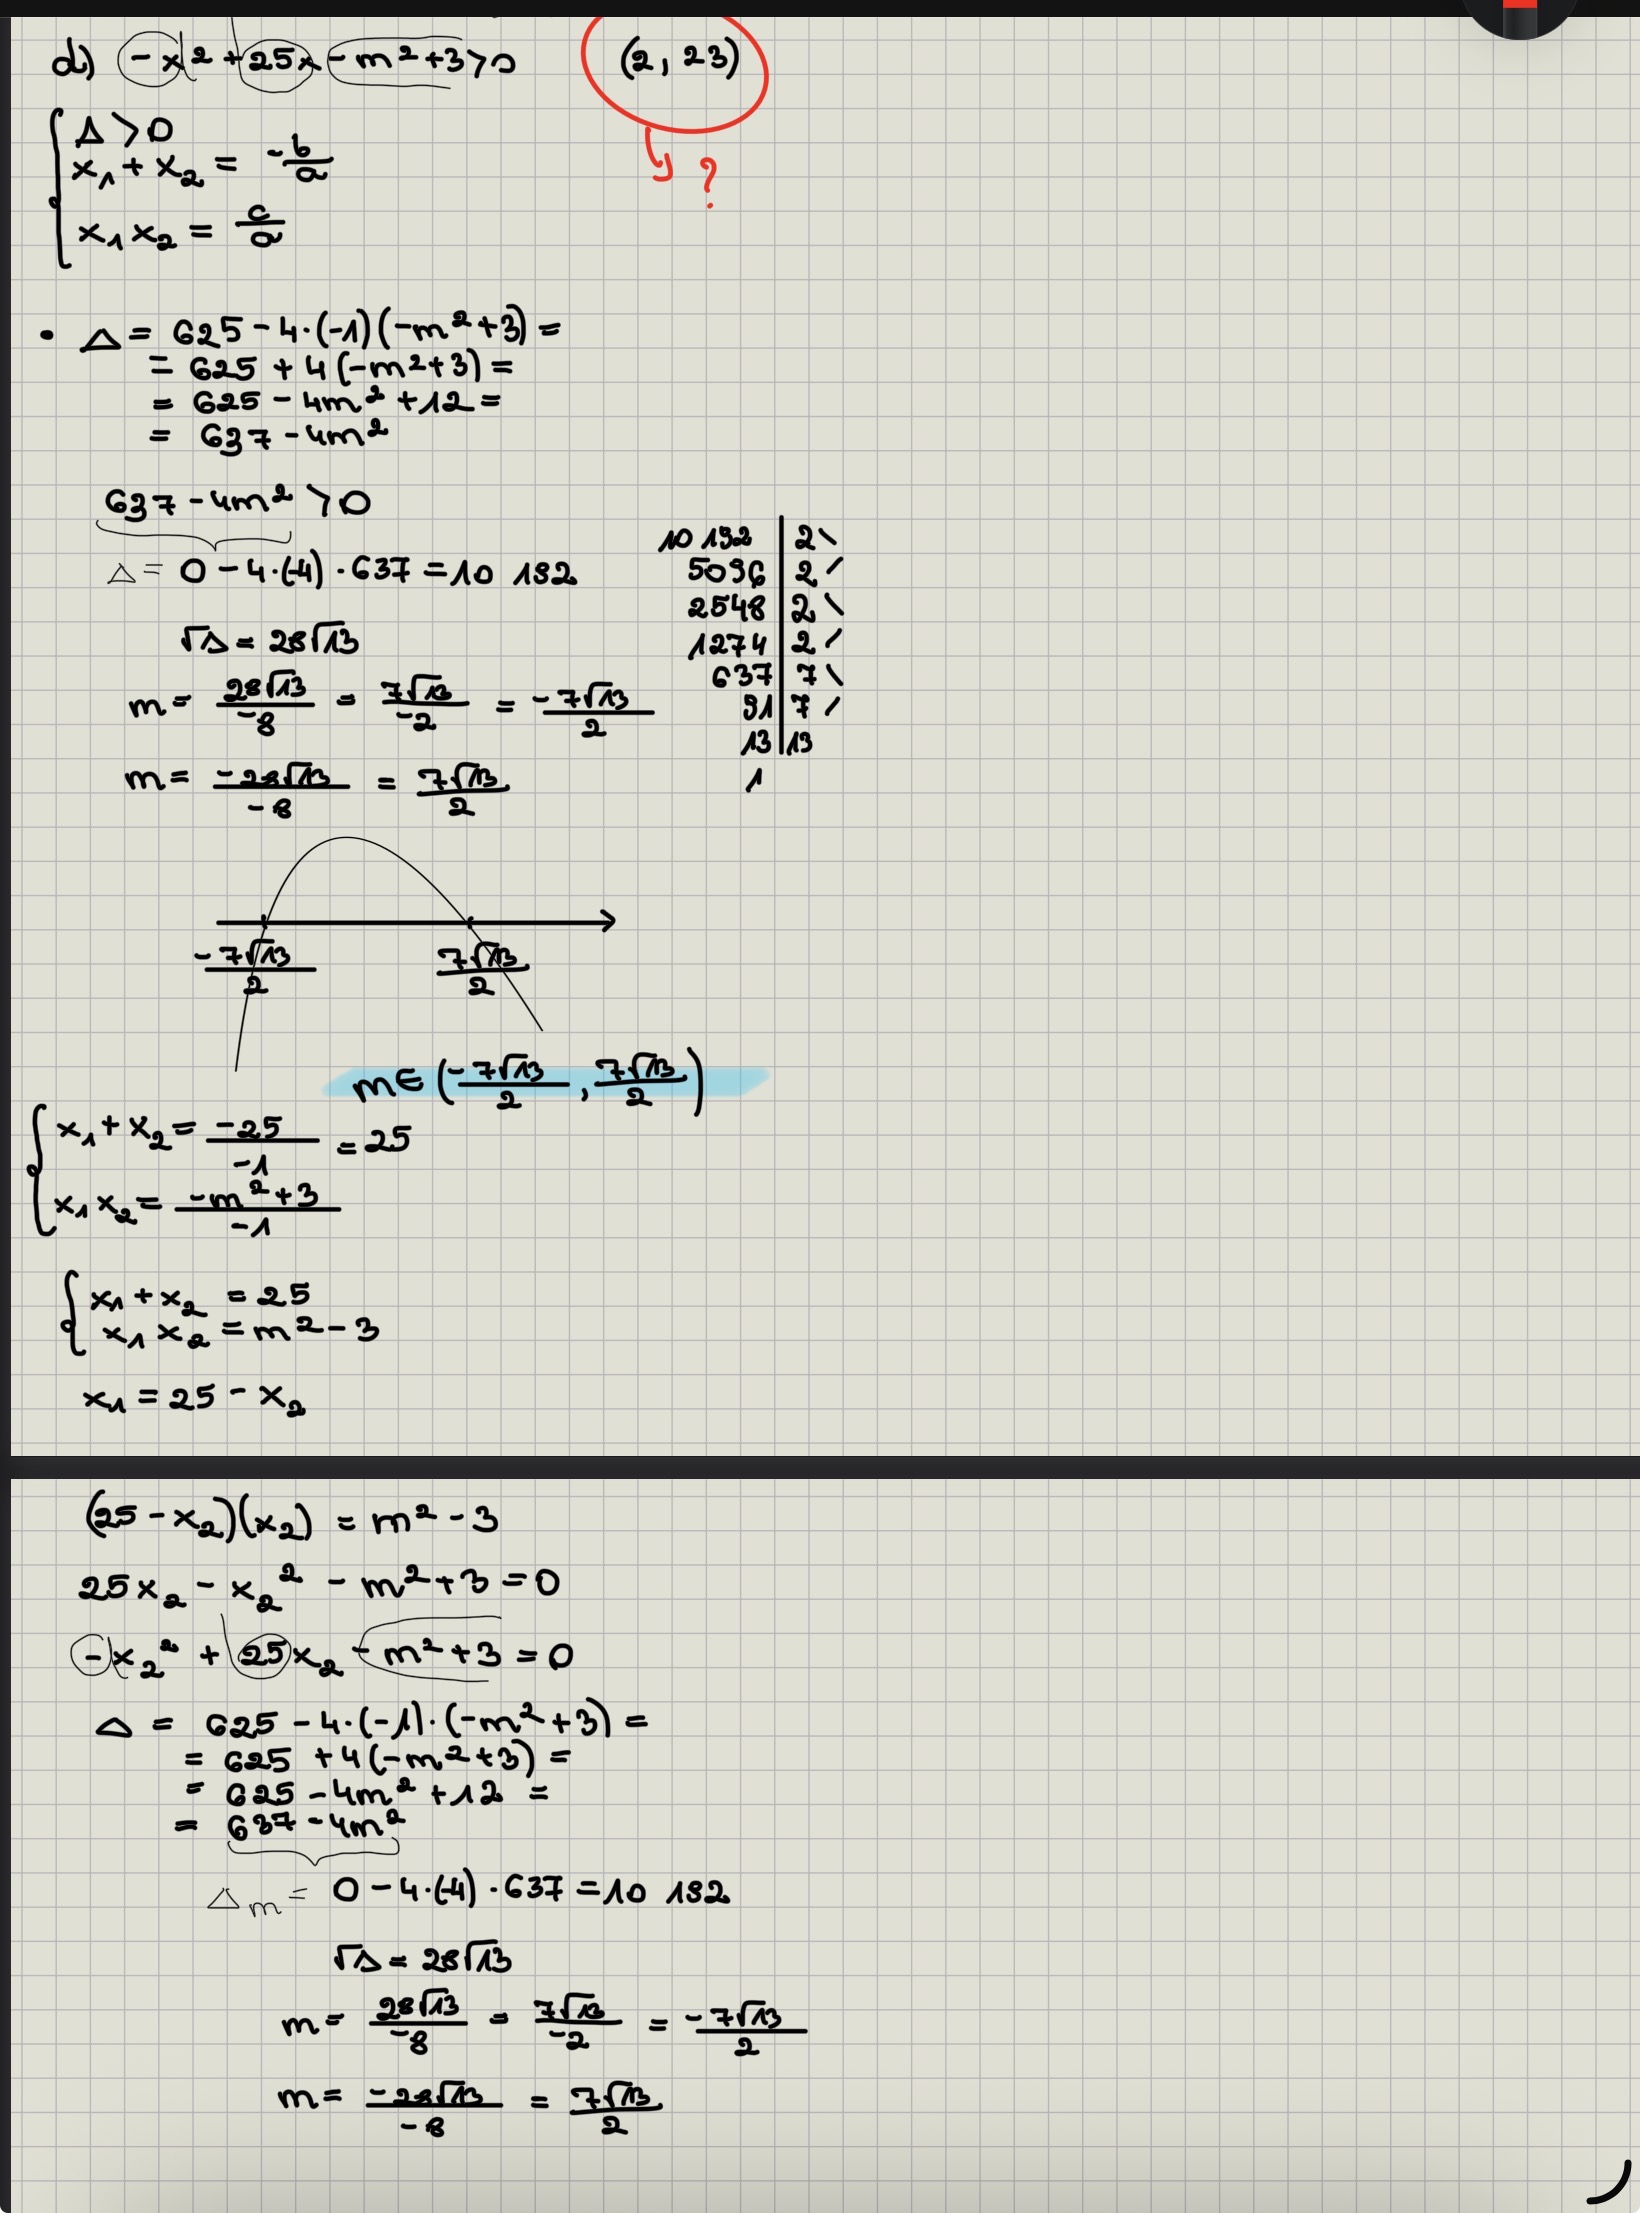 d) -x² + 25x - m² + 3 > 0 (2, 23)
Δ > 0
x₁ + x₂ = -b/a
?
x₁ x₂ = c/a
• Δ = 625 - 4·(-1)(-m² + 3) =
= 625 + 4(-m² + 3) =
= 625 - 4m² + 12 =
= 637 - 4m²
637 - 4m² > 0
Δ = 0 - 4·(-4)·637 = 10 192
√Δ = 28√13
m = 28√13/-8 = 7√13/-2 = -7√13/2
m = -28√13/-8 = 7√13/2
10 192 | 2
5096 | 2
2548 | 2
1274 | 2
637 | 7
91 | 7
13 | 13
1
-7√13/2 7√13/2
m ∈ (-7√13/2, 7√13/2)
x₁ + x₂ = -25/-1 = 25
x₁ x₂ = -m² + 3/-1
x₁ + x₂ = 25
x₁ x₂ = m² - 3
x₁ = 25 - x₂
(25 - x₂)(x₂) = m² - 3
25x₂ - x₂² - m² + 3 = 0
-x₂² + 25x₂ - m² + 3 = 0
Δ = 625 - 4·(-1)·(-m² + 3) =
= 625 + 4(-m² + 3) =
= 625 - 4m² + 12 =
= 637 - 4m²
Δm = 0 - 4·(-4)·637 = 10 192
√Δ = 28√13
m = 28√13/-8 = 7√13/-2 = -7√13/2
m = -28√13/-8 = 7√13/2